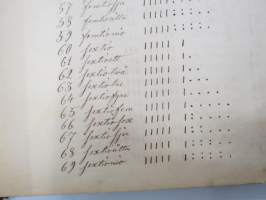 57 femtiosju
58 femtioåtta
59 femtionio
60 sextio
61 sextioett
62 sextiotvå
63 sextiotre
64 sextiofyra
65 sextiofem
66 sextiosex
67 sextiosju
68 sextioåtta
69 sextionio